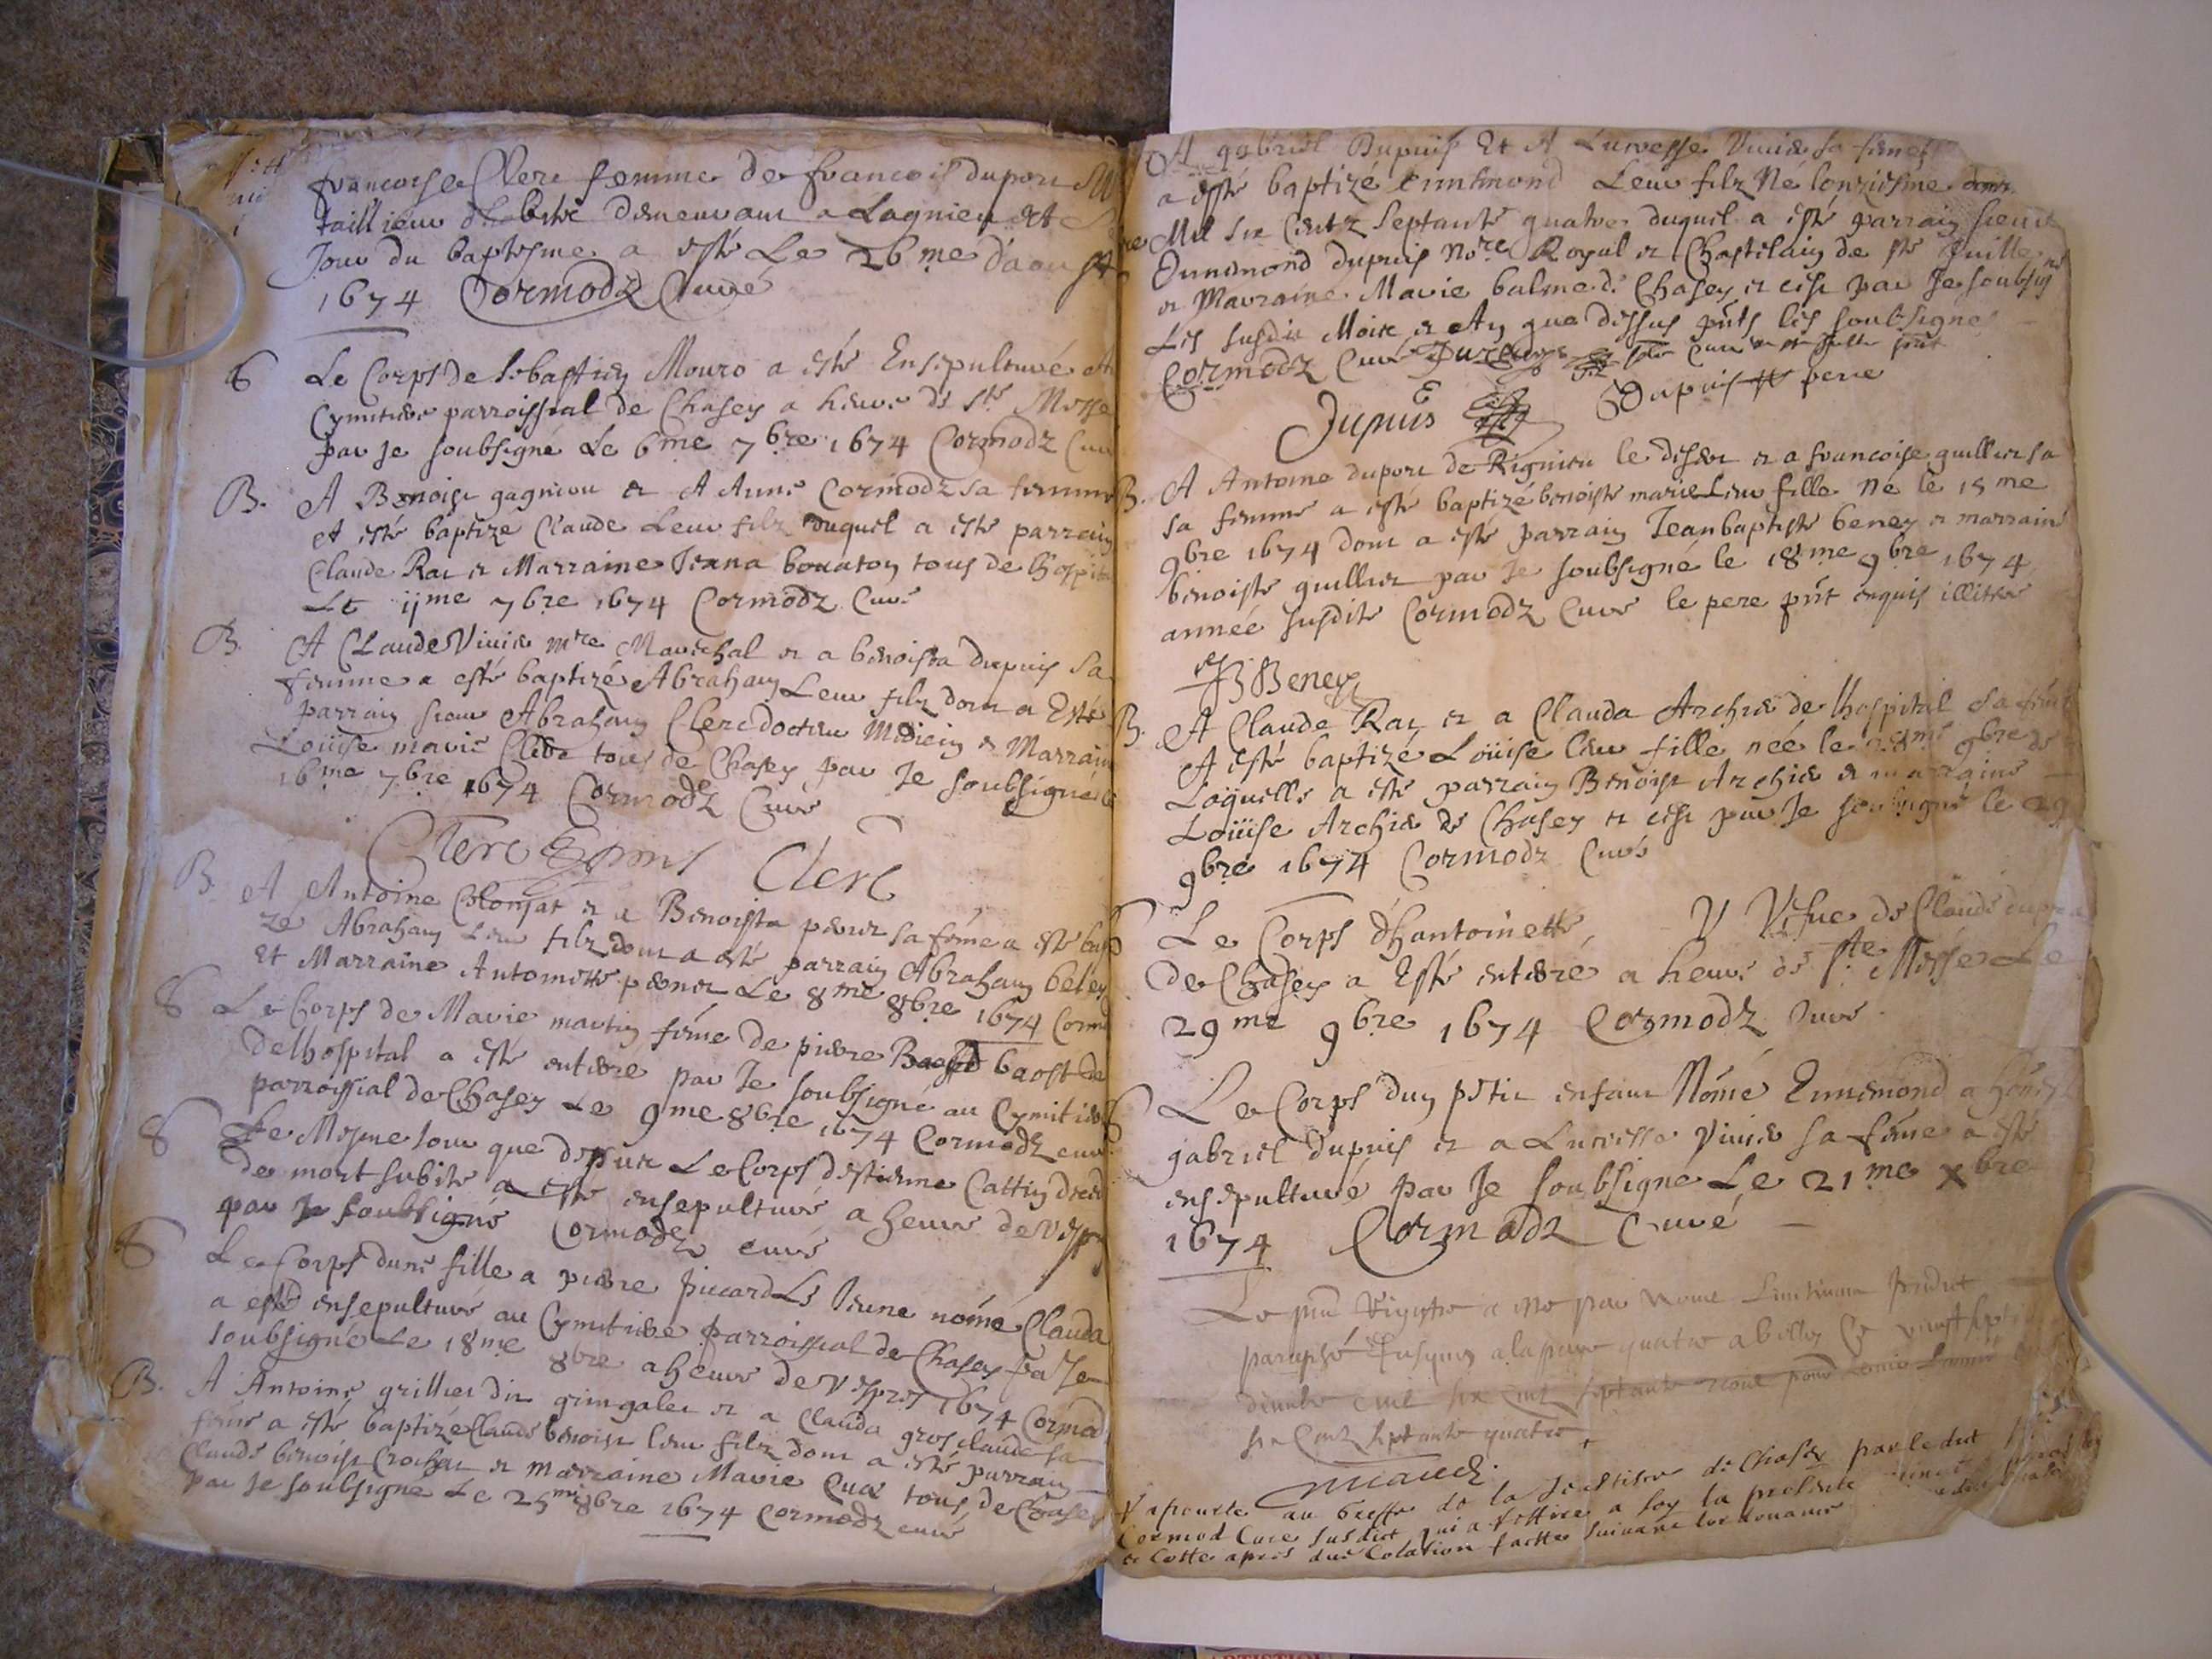 francoise Clerc femme de francois duport
taillieur dhabitz demeurant a Lagnieu et
Jour du baptesme a esté Le 26me daoust
1674 Cormodz Curé
S Le Corps de sebastien Mouro a esté Ensepulturé
Cymitiere parroissial de Chasey a heure de ste Messe
par Je soubsigné Le 6me 7bre 1674 Cormodz Cur
B. A Benoist gagniou et A Anne Cormodz sa femme
A esté baptizé Claude Leur filz duquel a esté parrain
Claude Rai et Marraine Jeana bonaton tous de lhospita
Le ijme 7bre 1674 Cormodz Curé
B. A Claude Vivier mre Mareschal et a benoista dupuis sa
femme a esté baptizé Abraham Leur filz dont a Esté
parrain sieur Abraham Clerc docteur Medicin et Marraine
Loüise marie Clerc tous de Chasey par Je soubsigné le
16me 7bre 1674 Cormodz Curé
Clerc Clerc
B. A Antoine et a Benoista perier sa fême a esté bap
zé Abraham Leur filz dont a esté parrain Abraham beley
Et Marraine Antoinette perier Le 8me 8bre 1674 Corm
S Le Corps de Marie martin fême de pierre baost de
delhospital a esté enterre par Je soubsigné au Cymitiere
parroissial de Chasey Le 9me 8bre 1674 Cormodz curé
S Le Mesme Jour que dessus Le Corps destienne Cattin
de mort subite a esté ensepulturé a heure de vespr
par Je soubsigné Cormodz curé
S Le Corps dune fille a pierre piccard Le Jeune nômé Clauda
a esté ensepulturé au Cymitiere parroissial de Chasey par Je
soubsigné Le 18me 8bre a heure de vespres 1674 Cormod
B. A Antoine grillier dit gringalet et a Clauda grosclaude sa
fême a esté baptizé Claude benoist leur filz dont a esté parrain
Claude benoist Crochat et Marraine Marie tous de Chasey
par Je soubsigné Le 25me 8bre 1674 Cormodz curé
A gabriel Dupuis Et A Lucresse Vivier sa femê
a esté baptizé Ennemond Leur filz Né lonziesme
Mil six Centz septante quatre duquel a esté parrain sieur
Ennemond dupuis Nore Royal et Chastelain de st
et Marraine Marie balme de Chasey et cest par Je soubsigné
Les susdit Mois et An que dessus pñts les soubsignes
Cormodz Curé
Dupuis Dupuis pere
B. A Antoine duport de Rignieu le desert et a francoise guillier sa
sa femme a esté baptizé benoiste marie Leur fille Né le 15me
9bre 1674 dont a esté parrain Jean baptiste beney et marraine
benoiste guillier par Je soubsigné le 18me 9bre 1674
année susdite Cormodz Curé le pere pñt enquis illitere
JB Beney
B. A Claude Rai et a Clauda Archier de lhospital sa fême
A esté baptizé Loüise leur fille née le 28me 9bre de
Laquelle a esté parrain Benoist Archier et marraine
Loüise Archier de Chasey et cest par Je soubsigné le 29
9bre 1674 Cormodz Curé
Le Corps dhantoinette V Vefue de Claude
de Chasey a Esté enterré a heure de ste Messe Le
29me 9bre 1674 Cormodz Curé
Le Corps dun petit enfant Nômé Ennemond a
gabriel dupuis et a Lucresse Vivier sa fême a esté
ensepulturé par Je soubsigné Le 21me xbre
1674 Cormodz Curé
Le Registre a esté par nous
paraphé Jusques a la page quatre
mil six cent septante
six Centz septante quatre
au Greffe de la Justice de Chasey par ledit
Cormod Cure susdict qui a retiré a soy la presente
et Cotte apres due Colation faicte suivant lordonnance